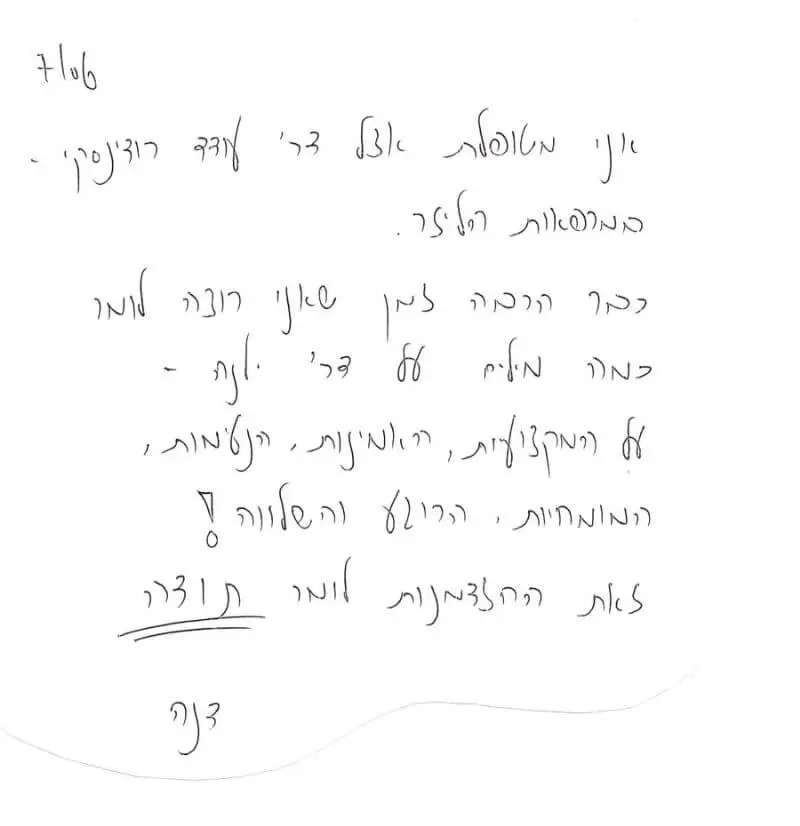 7/06
אני מטופלת אצל דר' עודד רודינסקי -
במרפאות הליזר.
כבר הרבה זמן שאני רוצה לומר
כמה מילים על דר' ילנה -
על המקצועיות, האמינות, הנעימות,
המומחיות, הרוגע והשלווה!
זאת ההזדמנות לומר תודה
דנה